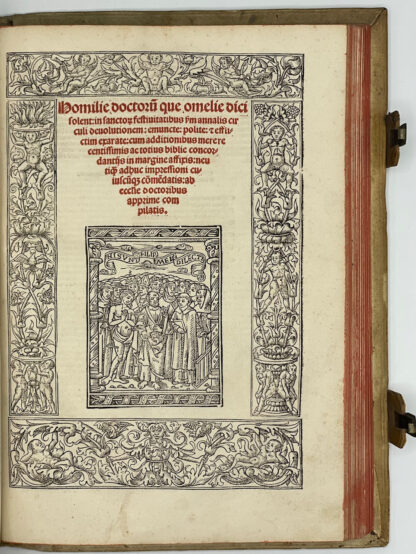 Homilie doctorū que omelie dici
solent: in sanctoꝝ festiuitatibus ẜm annalis cir
culi deuolutionem: emuncte: polite: ⁊ effi
ctim exarate: cum additionibus mere re
centissimis ac totius biblie concor
dantijs in margine affixis: neu
tiqꝫ adhuc impressioni cu
iuscūqꝫ cōmēdatis: ab
ecclie doctoribus
apprime com
pilatis.
FILII